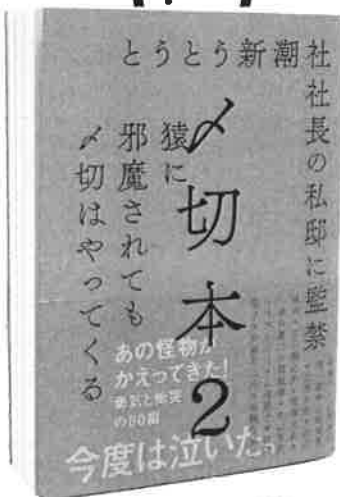 とうとう新潮社
社長の私邸に監禁
〆切本2
猿に
邪魔されても
〆切はやってくる
あの怪物が
かえってきた!
勇気と慟哭
の80篇
今度は泣いた。